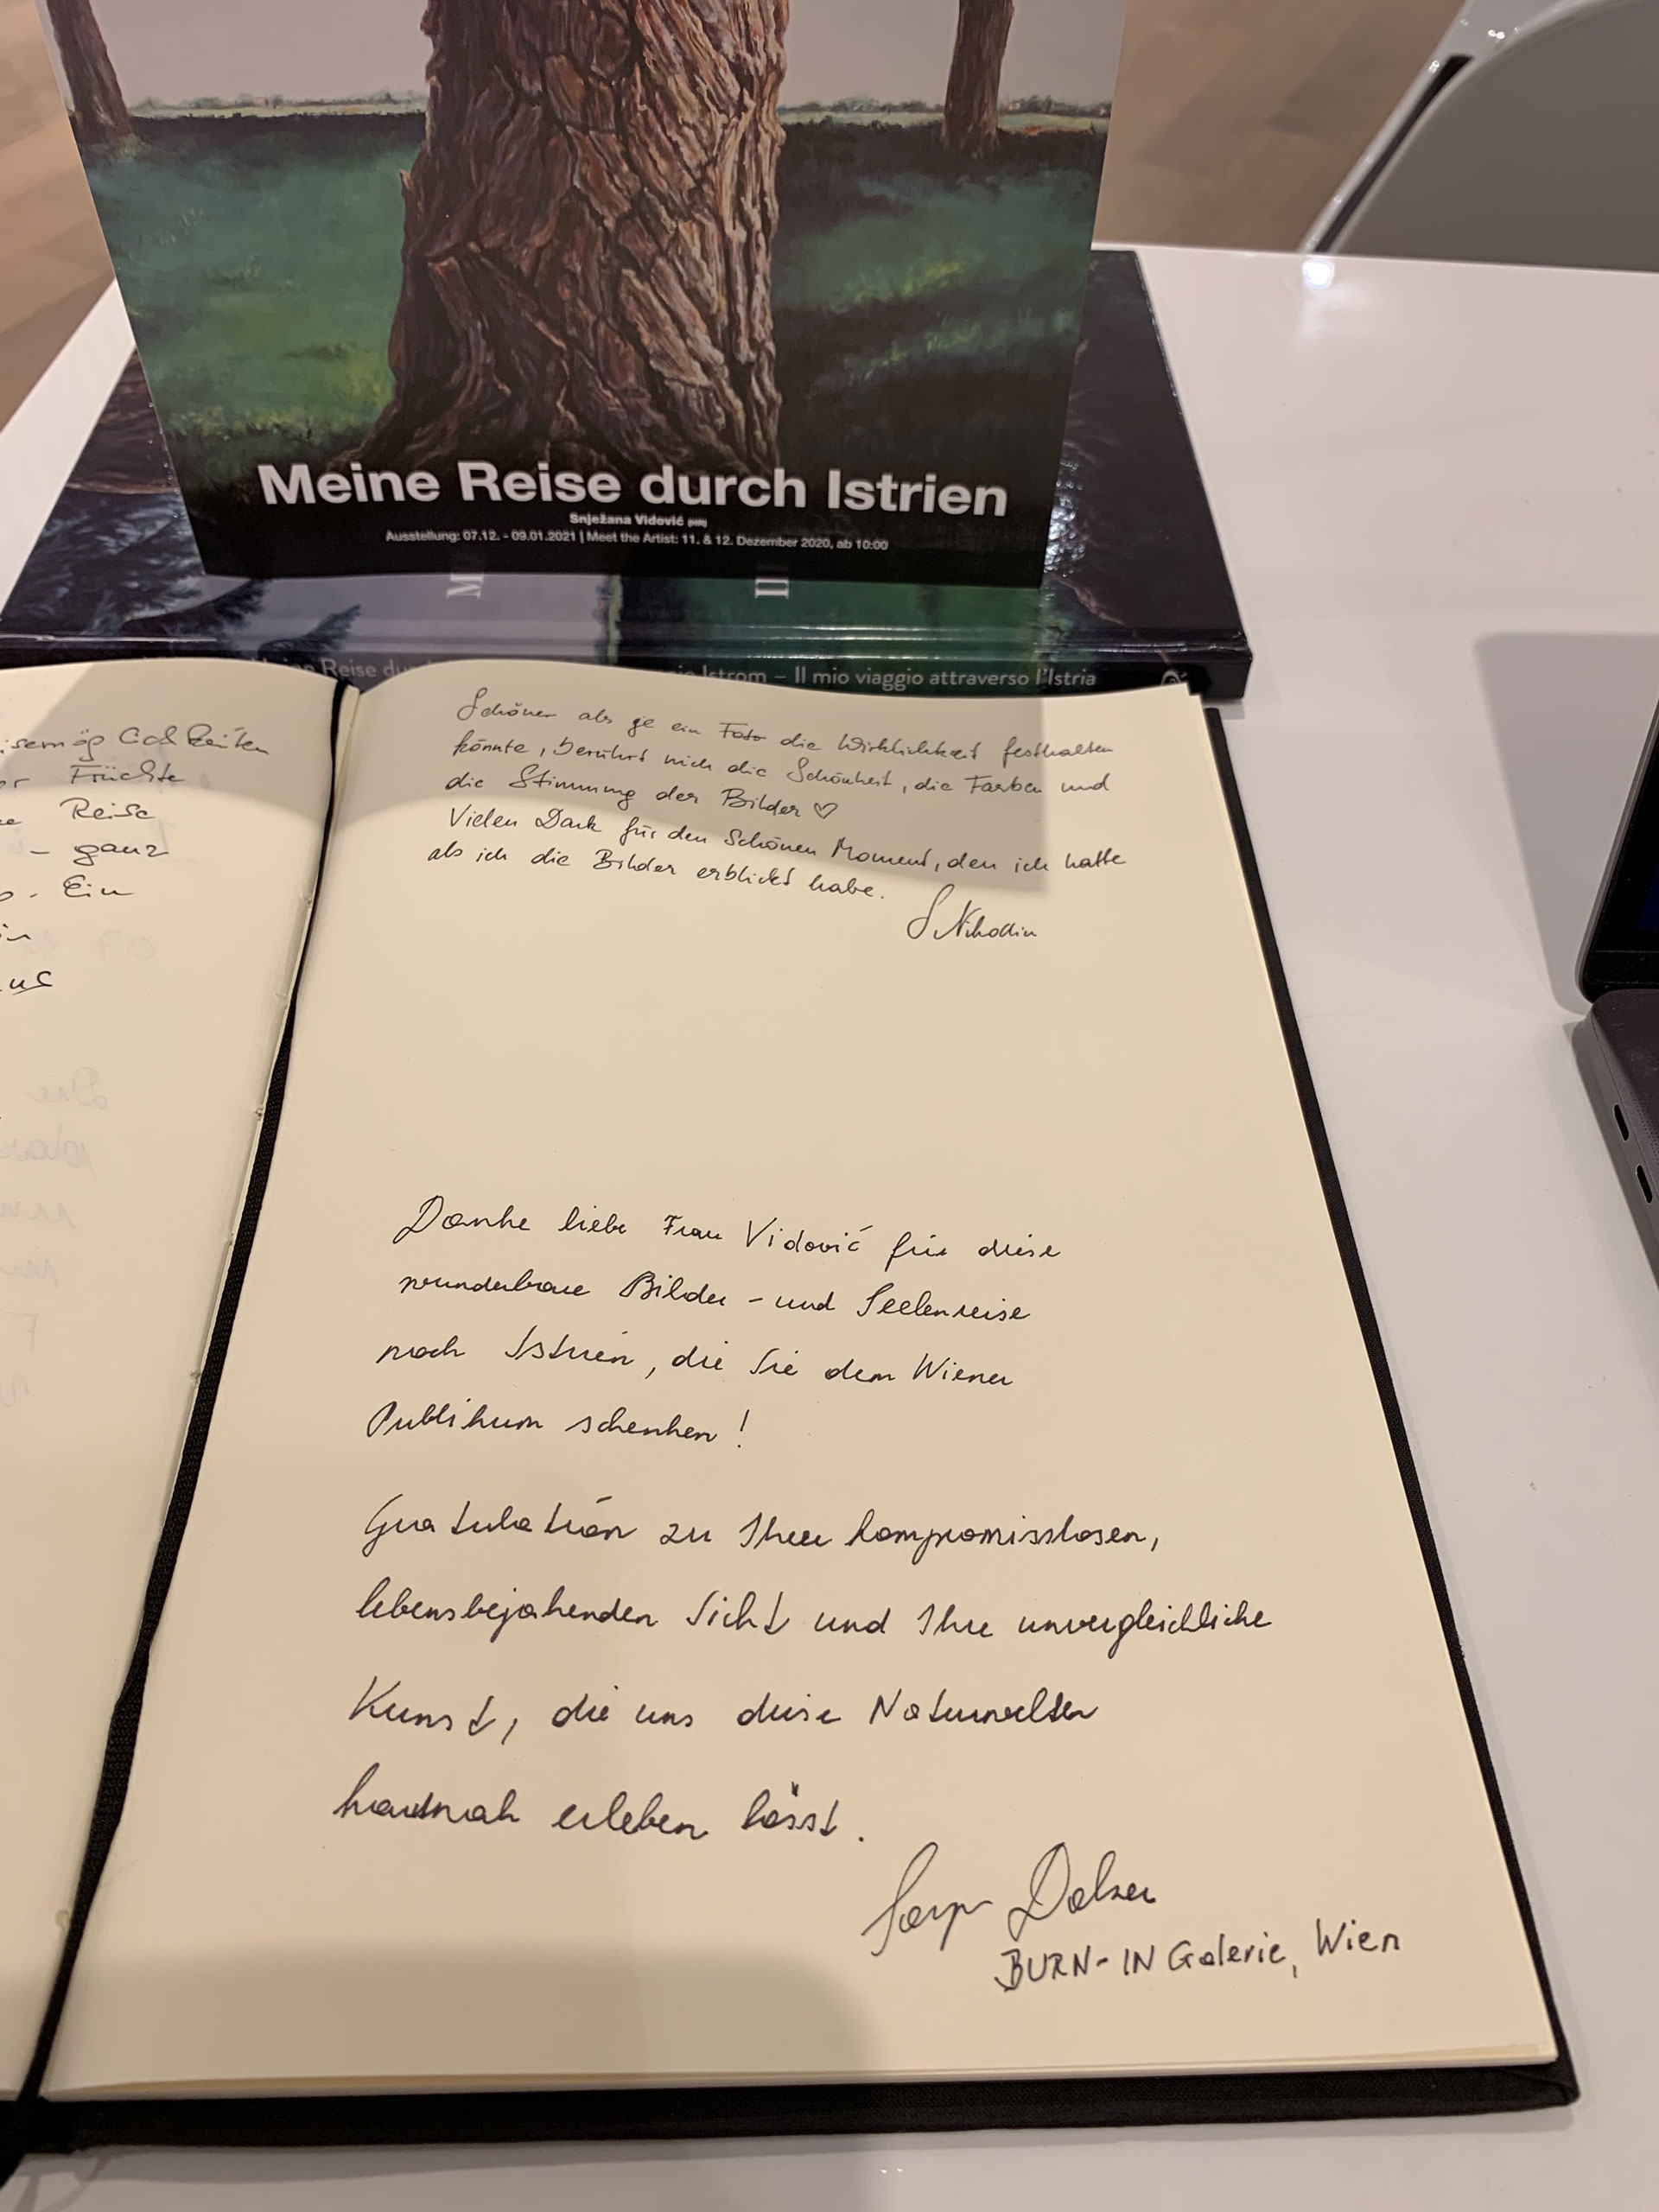 Meine Reise durch Istrien
Snježana Vidović
Ausstellung: 07.12. - 09.01.2021 | Meet the Artist: 11. & 12. Dezember 2020, ab 10:00
Reise
Istrom – Il mio viaggio attraverso l'Istria
Früchte
Reise
– ganz
Ein
Schöner als je ein Foto die Wirklichkeit festhalten
könnte, berührt mich die Schönheit, die Farben und
die Stimmung der Bilder ♡
Vielen Dank für den Schönen Moment, den ich hatte
als ich die Bilder erblickt habe.
Danke liebe Frau Vidović für diese
wunderbare Bilder - und Seelenreise
nach Istrien, die Sie dem Wiener
Publikum schenken!
Gratulation zu Ihrer kompromisslosen,
lebensbejahenden Sicht und Ihre unvergleichliche
Kunst, die uns diese Naturwelten
hautnah erleben lässt.
Dolzer
BURN-IN Galerie, Wien